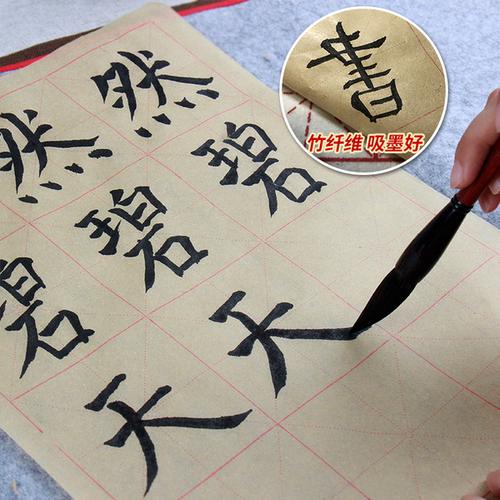 書
竹纤维 吸墨好
然 然
碧 碧 碧
天 天